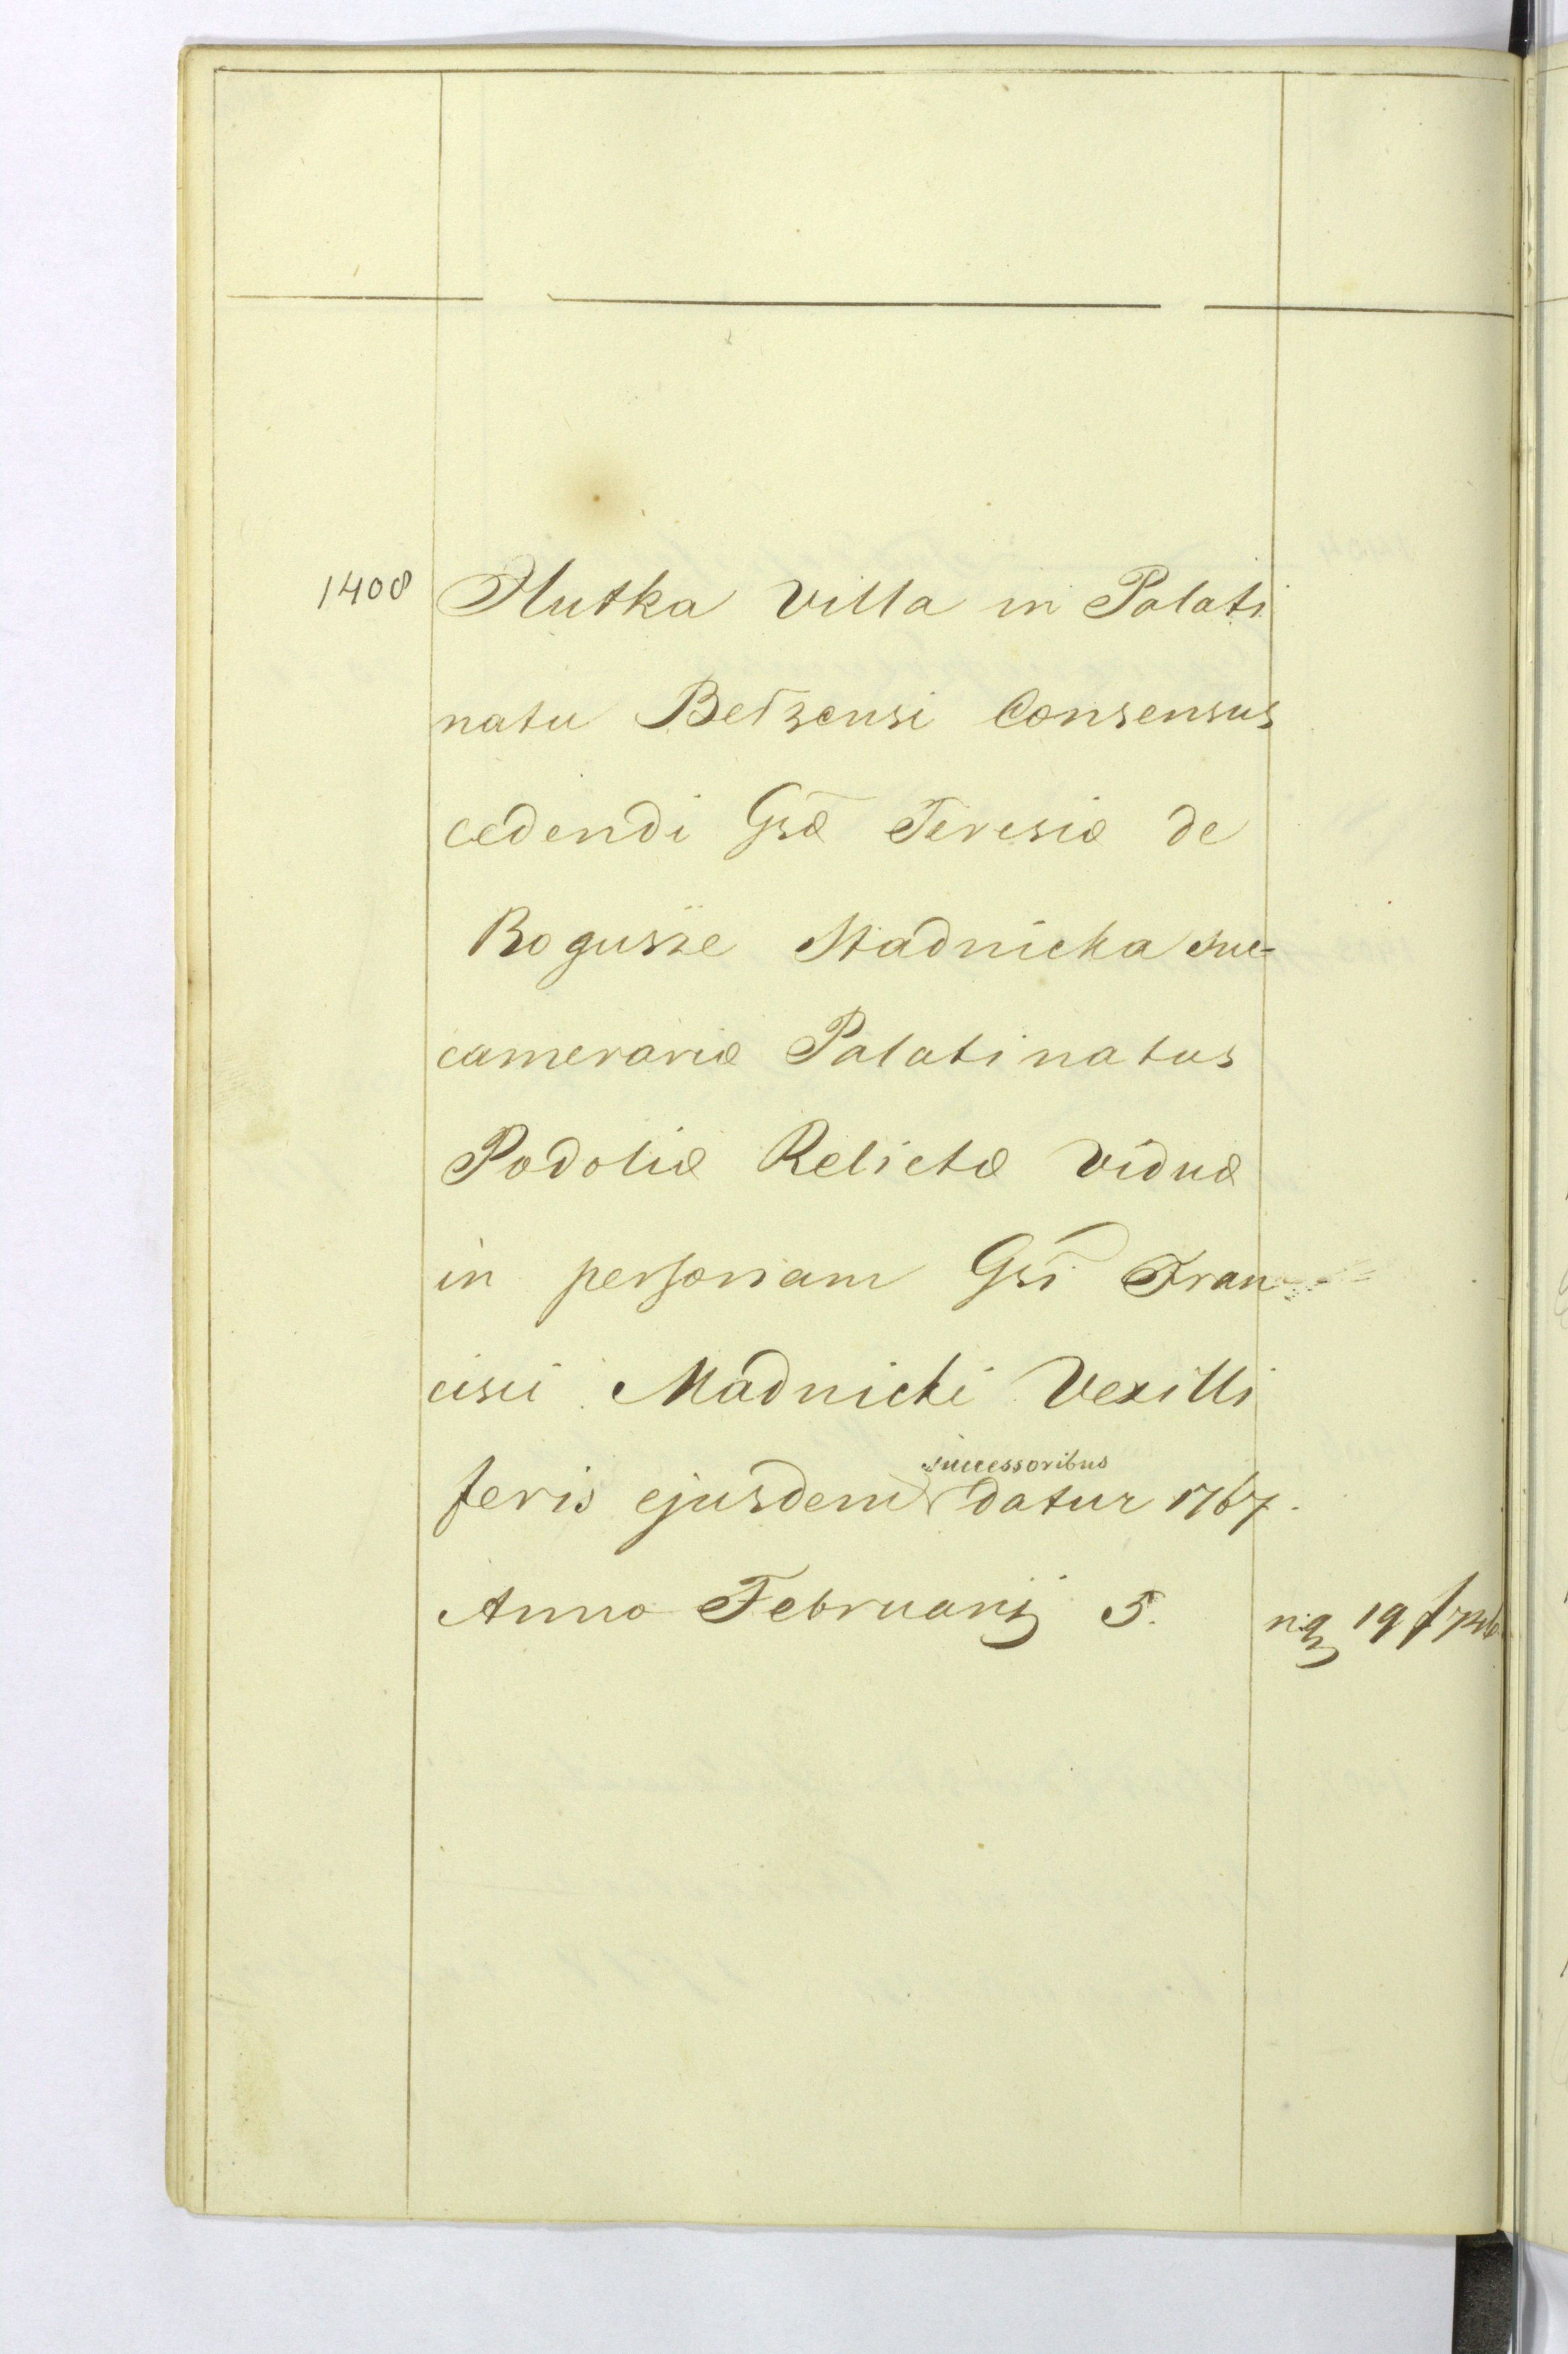 1408 Hutka Villa in Palati
natu Betzensi Consensus
cedendi Gsæ Teresiæ de
Bogusze Stadnicka suc-
camerariæ Palatinatus
Podoliæ Relictæ Viduæ
in personam Gsi Fran-
cisci Stadnicki Vexilli
successoribus
feris ejusdem datur 1767.
Anno Februarij 5. 19 f